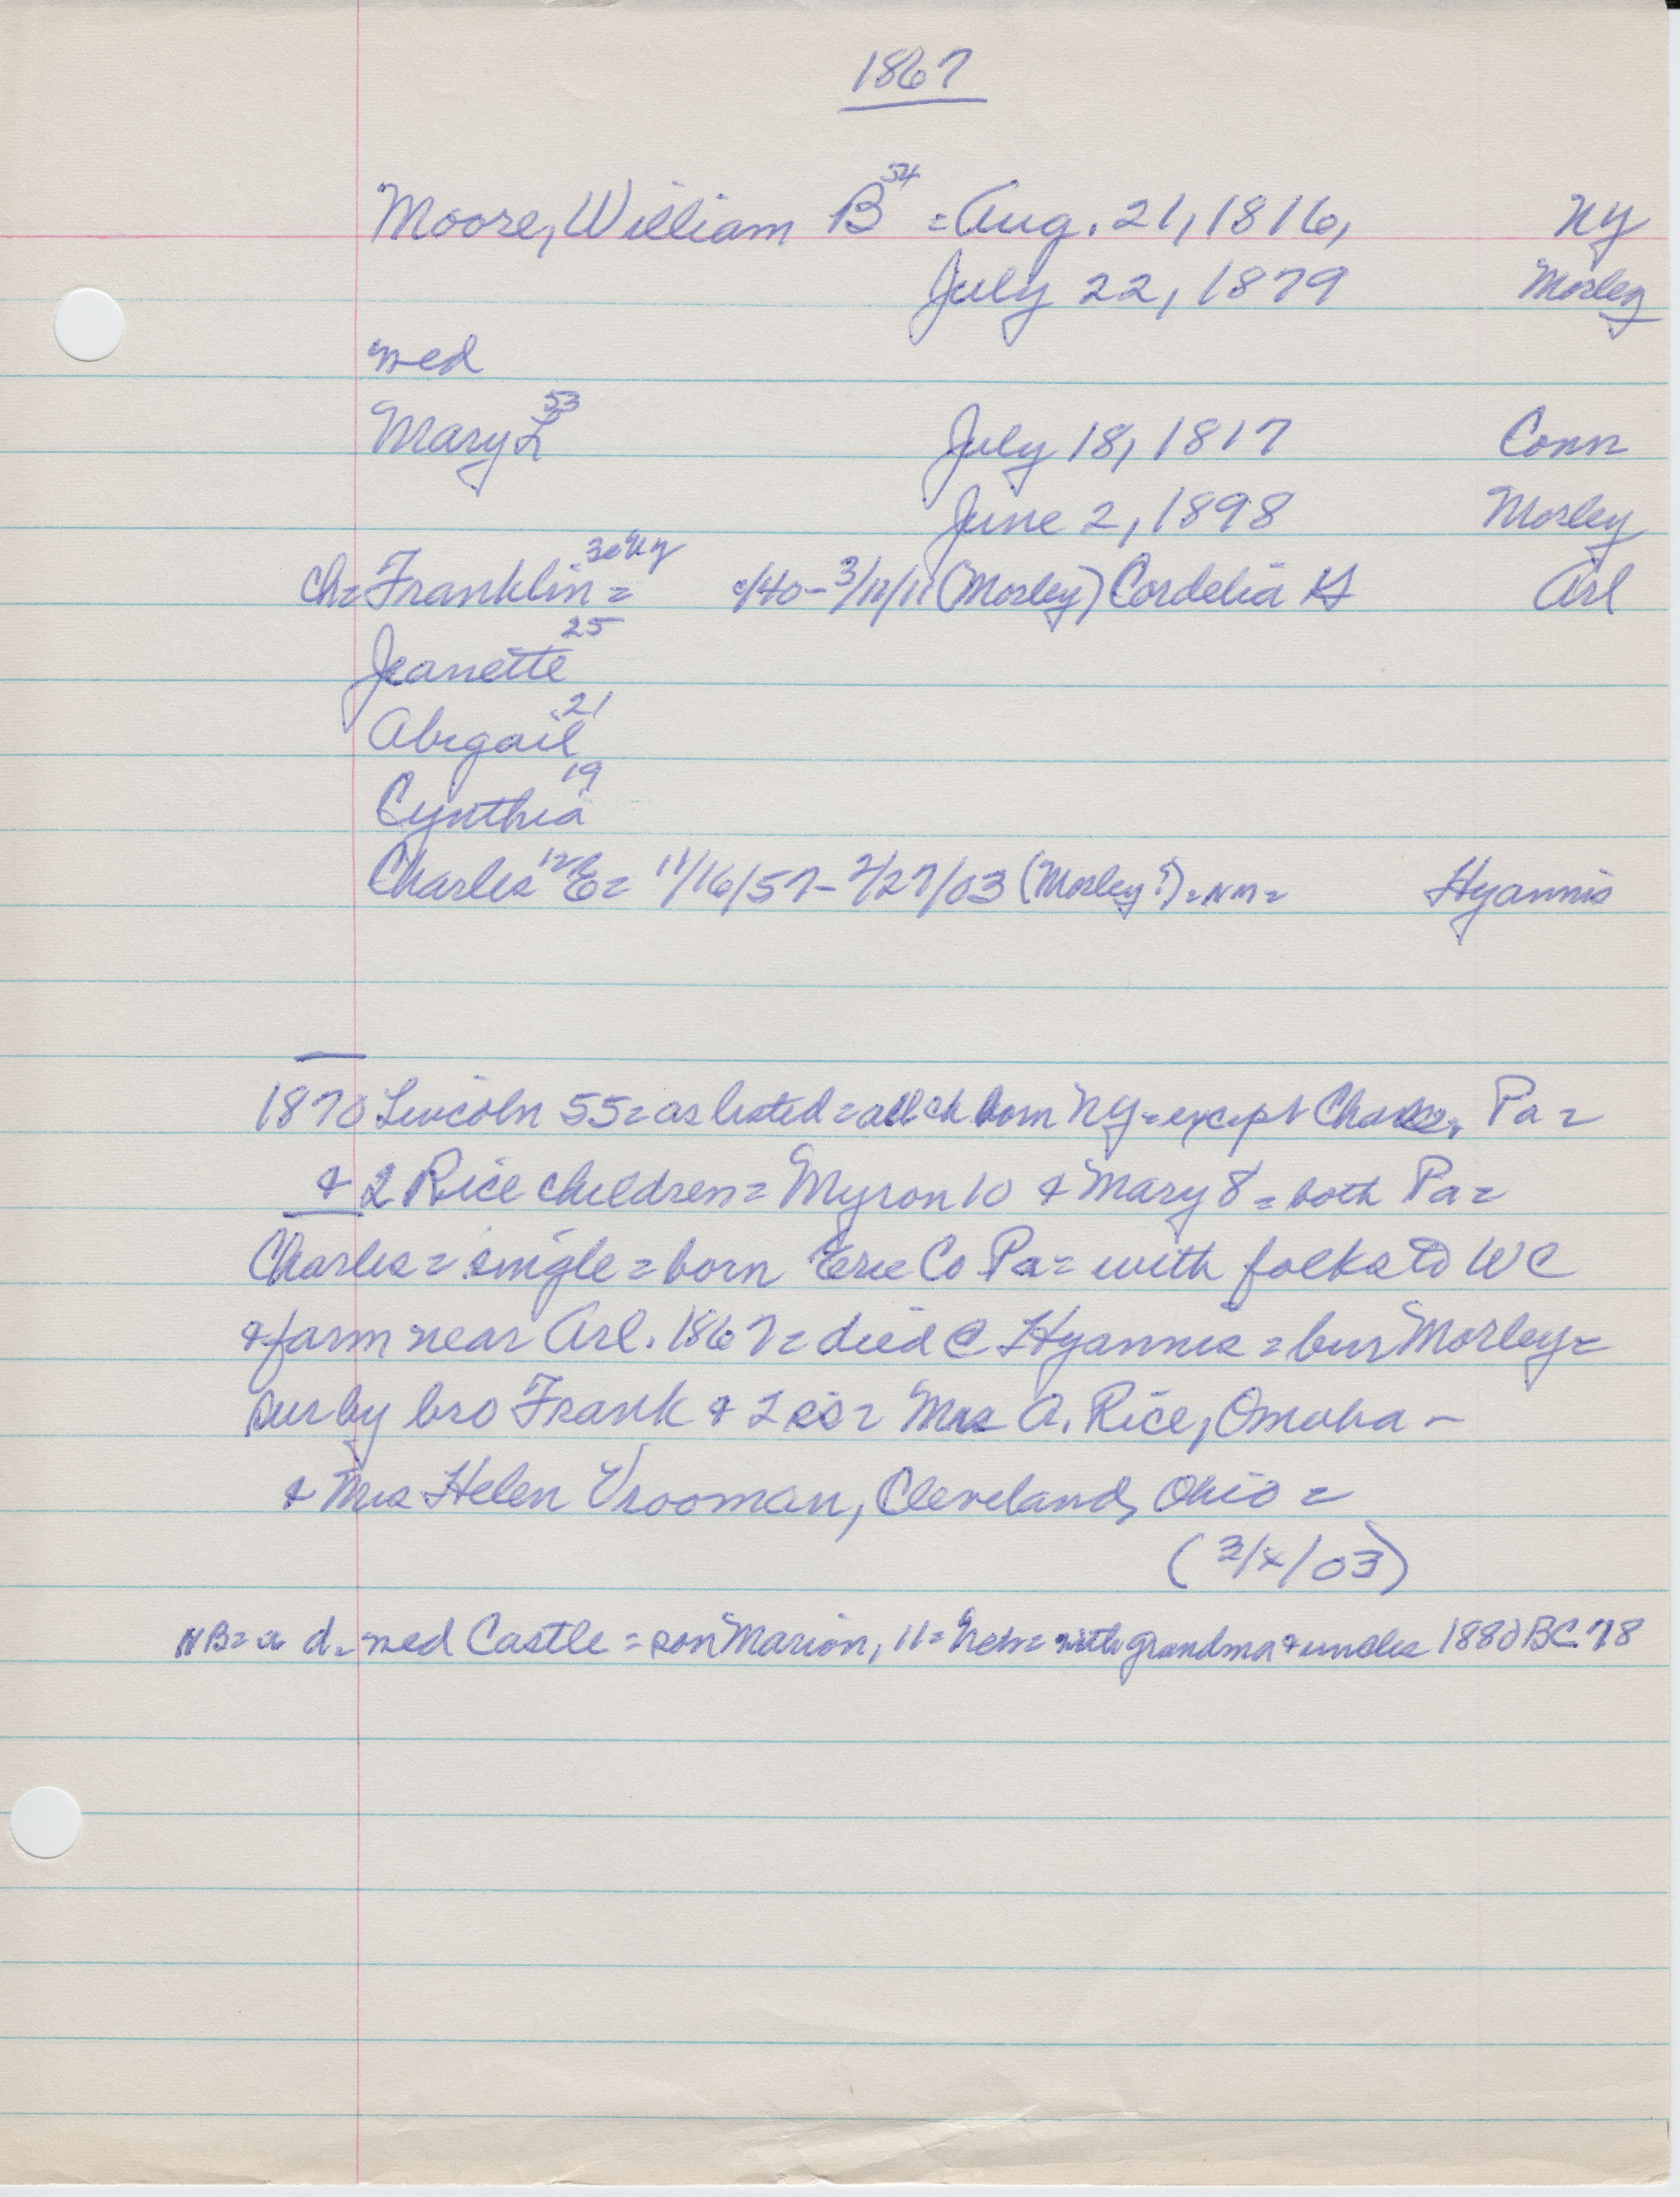 1867
Moore, William B 54 = Aug. 21, 1816, NY
July 22, 1879 Morley
med
Mary L 53 July 18, 1817 Conn
June 2, 1898 Morley
ch= Franklin = 30 NY c/40 - 3/11/11 (Morley) Cordelia Arl
Jeanette 25
Abigail 21
Cynthia 19
Charles 12 E = 11/16/57 - 2/27/03 (Morley?) = NM = Hyannis
1870 Lincoln 55 = as listed = all ch born NY = except Pa =
& 2 Rice children = Myron 10 & Mary 8 = both Pa =
Charles = single = born Erie Co Pa = with folks to WC
& farm near Arl. 1867 = died @ Hyannis = bur Morley =
sur by bro Frank & 2 sis = Mrs A. Rice, Omaha -
& Mrs Helen Vrooman, Cleveland, Ohio =
(3/x/03)
NB = a d = med Castle = son Marion, 11 = Neb = with grandma & uncles 1880 BC 78